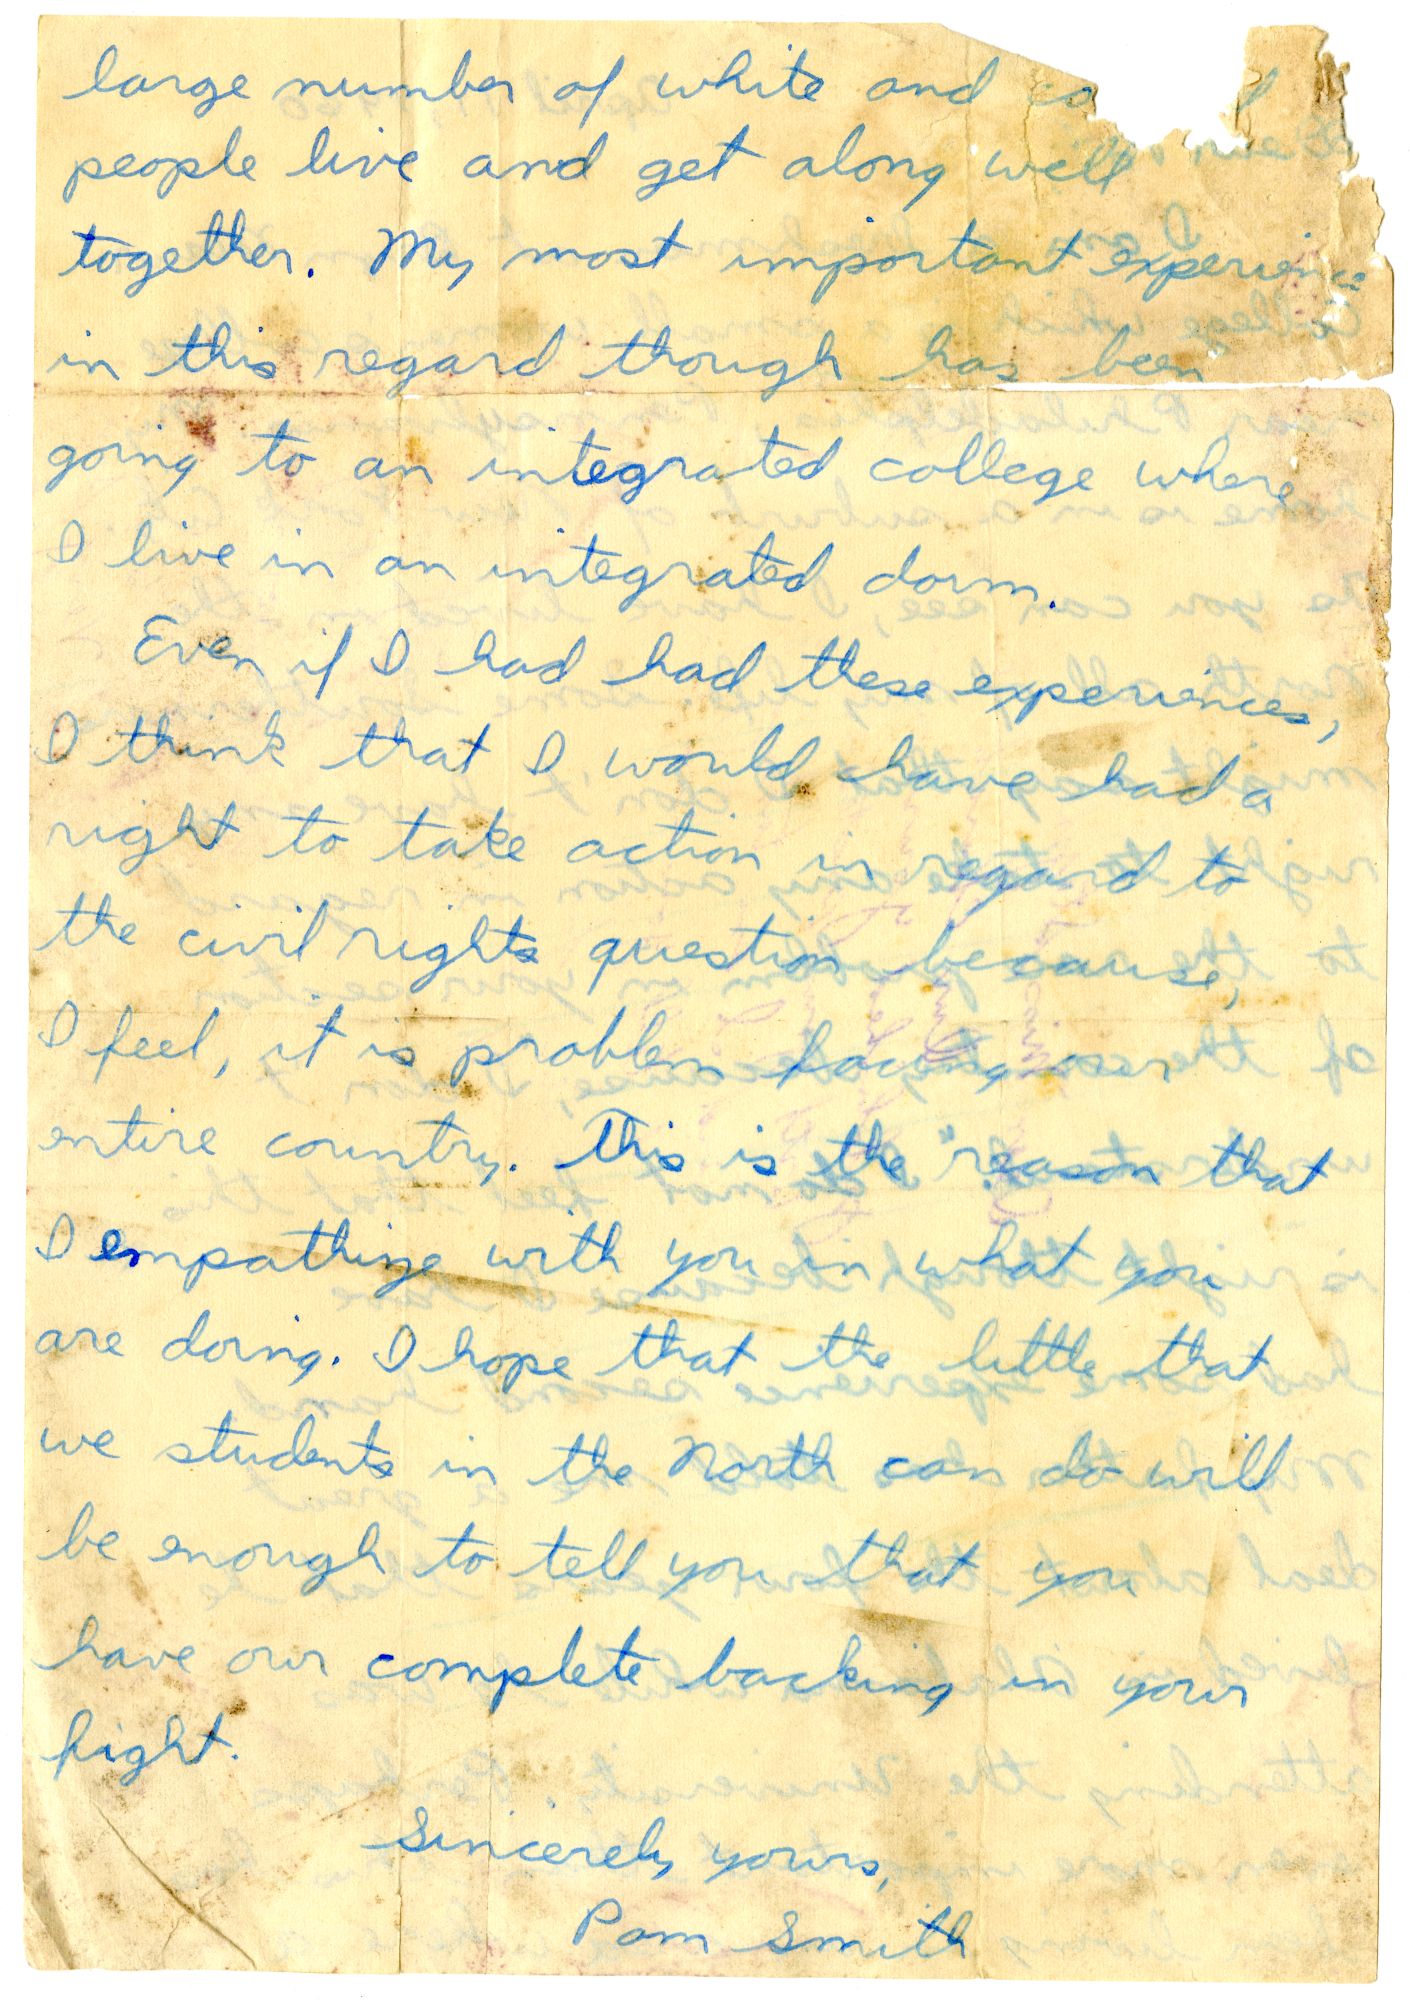 large number of white and co
people live and get along well
together. My most important experience
in this regard though has been
going to an integrated college where
I live in an integrated dorm.
Even if I had had these experiences,
I think that I would have had a
right to take action in regard to
the civil rights question because,
I feel, it is problem facing our
entire country. This is the reason that
I empathize with you in what you
are doing. I hope that the little that
we students in the North can do will
be enough to tell you that you
have our complete backing in your
fight.
Sincerely yours,
Pam Smith